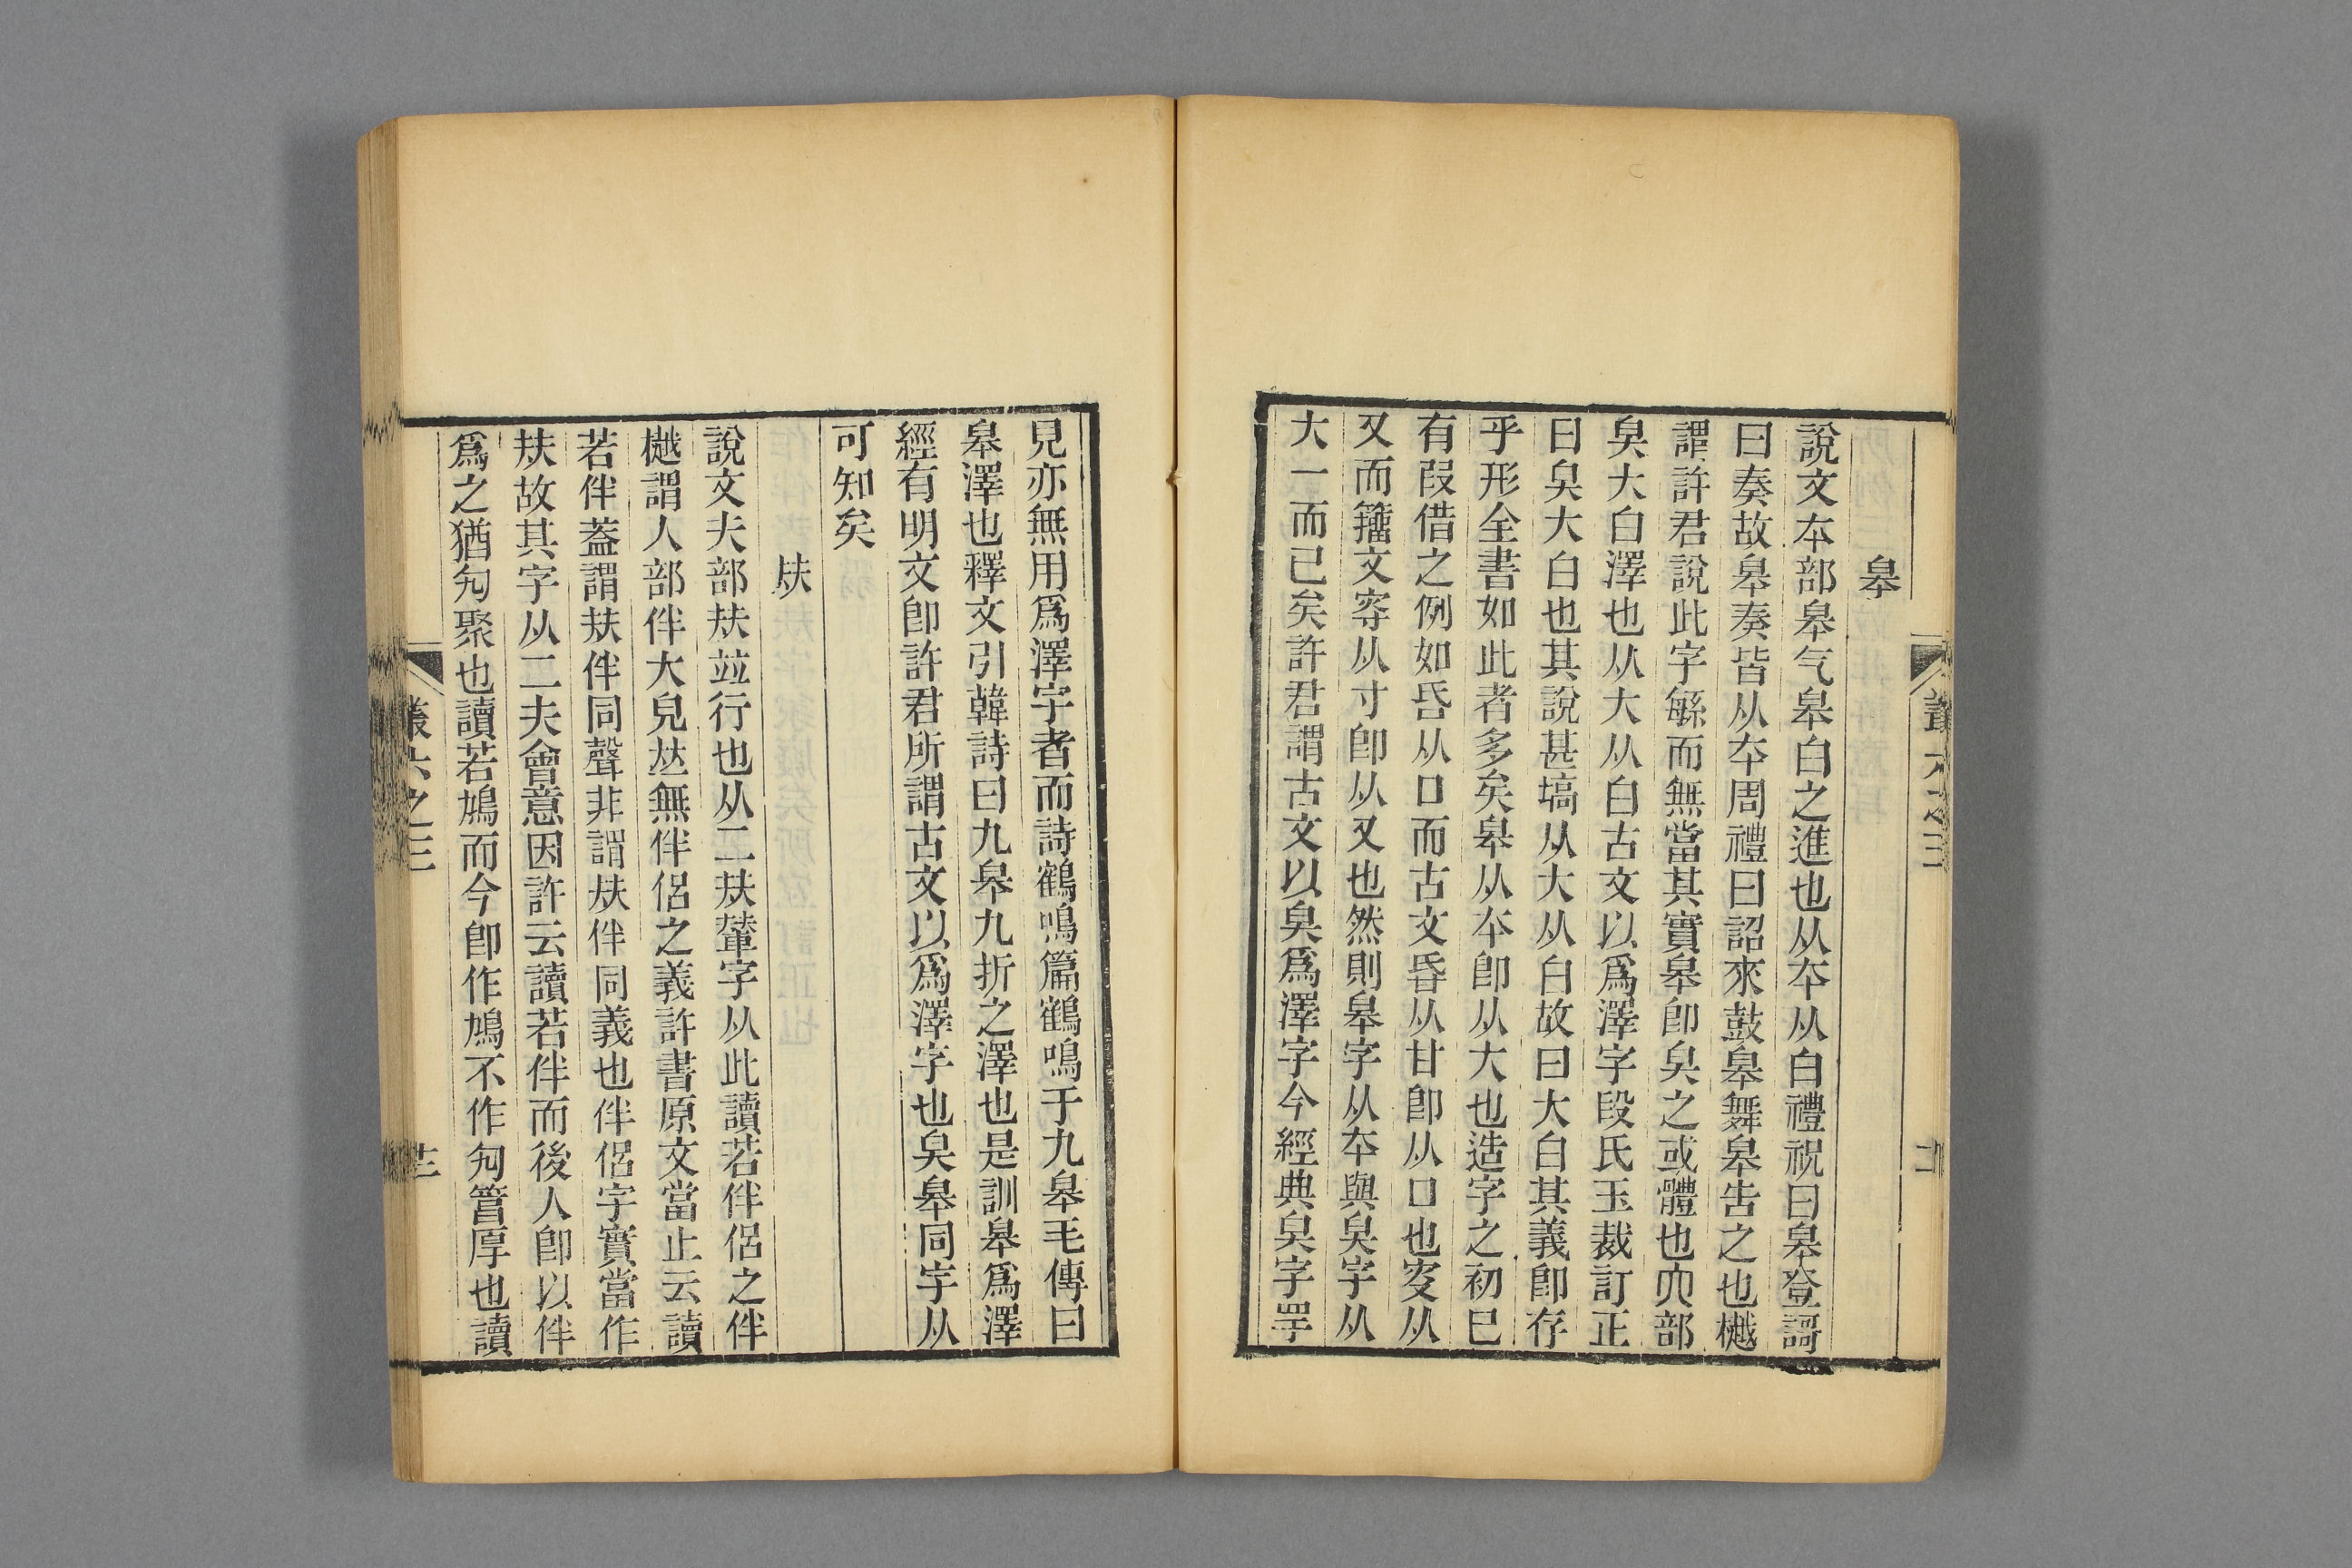 皋
說文夲部皋气皋白之進也从夲从白禮祝曰皋登謌
曰奏故皋奏皆从夲周禮曰詔來鼓皋舞皋告之也樾
謹許君說此字緐而無當其實皋卽臭之或體也亣部
臭大白澤也从大从白古文以爲澤字段氏玉裁訂正
曰臭大白也其說甚塙从大从白故曰大白其義卽存
乎形全書如此者多矣皋从夲卽从大也造字之初已
有叚借之例如昏从口而古文昏从甘卽从口也叜从
又而籒文㝊从寸卽从又也然則皋字从夲與臭字从
大一而已矣許君謂古文以臭爲澤字今經典臭字罕
見亦無用爲澤字者而詩鶴鳴篇鶴鳴于九皋毛傳曰
皋澤也釋文引韓詩曰九皋九折之澤也是訓皋爲澤
經有明文卽許君所謂古文以爲澤字也臭皋同字从
可知矣
㚘
說文夫部㚘竝行也从二夫輦字从此讀若伴侶之伴
樾謂人部伴大皃㚘無伴侶之義許書原文當止云讀
若伴蓋謂㚘伴同聲非謂㚘伴同義也伴侶字實當作
㚘故其字从二夫會意因許云讀若伴而後人卽以伴
爲之猶勼聚也讀若鳩而今卽作鳩不作勼䈞厚也讀
六之三